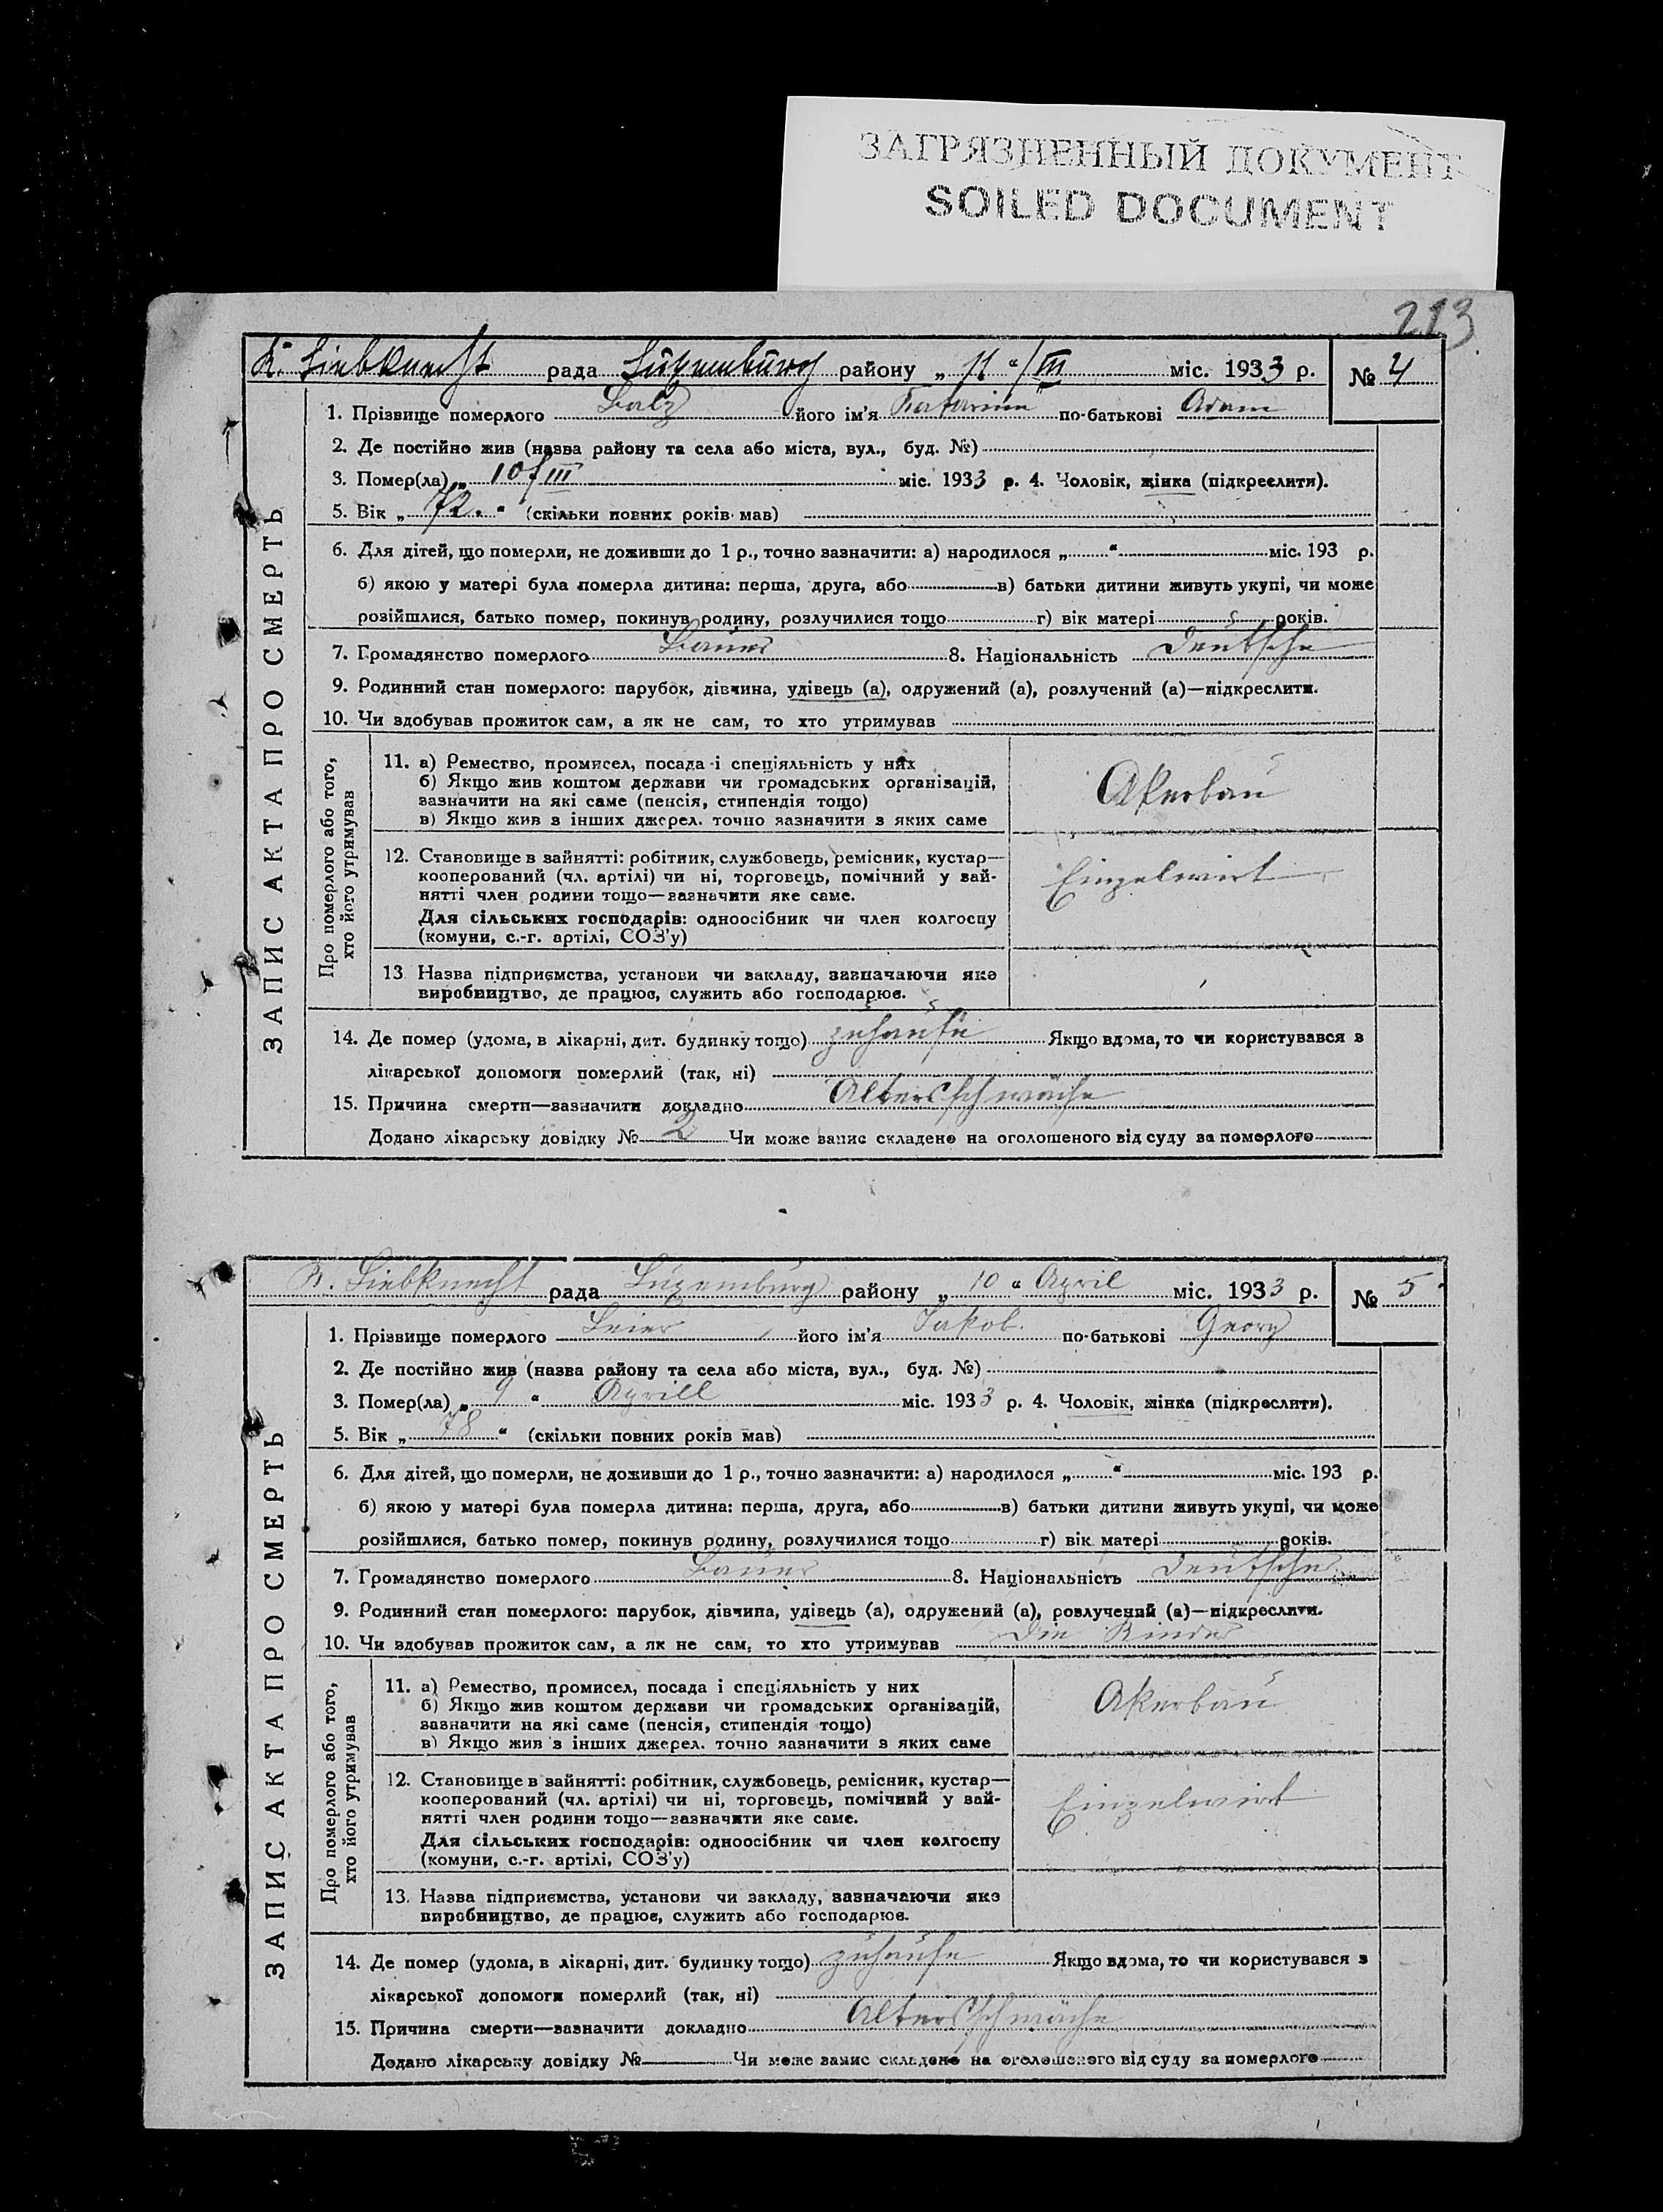 ЗАГРЯЗНЕННЫЙ ДОКУМЕНТ
SOILED DOCUMENT
213
K. Liebknecht рада Luxemburg районy „ 11 “/III міс. 1933 р. № 4
1. Прізвище померлого Balz його ім'я Katarina по-батькові Adam
2. Де постійно жив (назва району та села або міста, вул., буд. №)
3. Помер(ла) „ 10/III міс. 1933 р. 4. Чоловік, жінка (підкреслити).
5. Вік „ 72. “ (скільки повних років мав)
6. Для дітей, що померли, не доживши до 1 р., точно зазначити: а) народилося „ “ міс. 193 р.
б) якою у матері була померла дитина: перша, друга, або в) батьки дитини живуть укупі, чи може
розійшлися, батько помер, покинув родину, розлучилися тощо г) вік матері років.
7. Громадянство померлого Bauer 8. Національність Deutsche
9. Родинний стан померлого: парубок, дівчина, удівець (а), одружений (а), розлучений (а)—підкреслити.
10. Чи здобував прожиток сам, а як не сам, то хто утримував
ЗАПИС АКТА ПРО СМЕРТЬ
Про померлого або того,
хто його утримував
11. а) Ремество, промисел, посада і спеціяльність у них
б) Якщо жив коштом держави чи громадських організацій,
зазначити на які саме (пенсія, стипендія тощо)
в) Якщо жив з інших джерел. точно зазначити з яких саме
Akerbau
12. Становище в зайнятті: робітник, службовець, ремісник, кустар—
кооперований (чл. артілі) чи ні, торговець, помічний у зай-
нятті член родини тощо—зазначити яке саме.
Для сільських господарів: одноосібник чи член колгоспу
(комуни, с.-г. артілі, СОЗ'у)
Einzelwirt
13 Назва підприємства, установи чи закладу, зазначаючи яке
виробництво, де працює, служить або господарює.
14. Де помер (удома, в лікарні, дит. будинку тощо) zuhause Якщо вдома, то чи користувався з
лікарської допомоги померлий (так, ні)
15. Причина смерти—зазначити докладно Altersschwäche
Додано лікарську довідку № 2 Чи може запис складено на оголошеного від суду за померлого
K. Liebknecht рада Luxemburg району „ 10 “ April міс. 1933 р. № 5
1. Прізвище померлого Leier його ім'я Jakob. по-батькові Georg
2. Де постійно жив (назва району та села або міста, вул., буд. №)
3. Помер(ла) „ 9 “ Aprill міс. 1933 р. 4. Чоловік, жінка (підкреслити).
5. Вік „ 78 “ (скільки повних років мав)
6. Для дітей, що померли, не доживши до 1 р., точно зазначити: а) народилося „ “ міс. 193 р.
б) якою у матері була померла дитина: перша, друга, або в) батьки дитини живуть укупі, чи може
розійшлися, батько помер, покинув родину, розлучилися тощо г) вік матері років.
7. Громадянство померлого Bauer 8. Національність Deutscher
9. Родинний стан померлого: парубок, дівчина, удівець (а), одружений (а), розлучений (а)—підкреслити.
10. Чи здобував прожиток сам, а як не сам, то хто утримував Die Kinder
ЗАПИС АКТА ПРО СМЕРТЬ
Про померлого або того,
хто його утримував
11. а) Ремество, промисел, посада і спеціяльність у них
б) Якщо жив коштом держави чи громадських організацій,
зазначити на які саме (пенсія, стипендія тощо)
в) Якщо жив з інших джерел. точно зазначити з яких саме
Akerbau
12. Становище в зайнятті: робітник, службовець, ремісник, кустар—
кооперований (чл. артілі) чи ні, торговець, помічний у зай-
нятті член родини тощо—зазначити яке саме.
Для сільських господарів: одноосібник чи член колгоспу
(комуни, с.-г. артілі, СОЗ'у)
Einzelwirt
13. Назва підприємства, установи чи закладу, зазначаючи яке
виробництво, де працює, служить або господарює.
14. Де помер (удома, в лікарні, дит. будинку тощо) zuhause Якщо вдома, то чи користувався з
лікарської допомоги померлий (так, ні)
15. Причина смерти—зазначити докладно Altersschwäche
Додано лікарську довідку № Чи може запис складено на оголошеного від суду за померлого